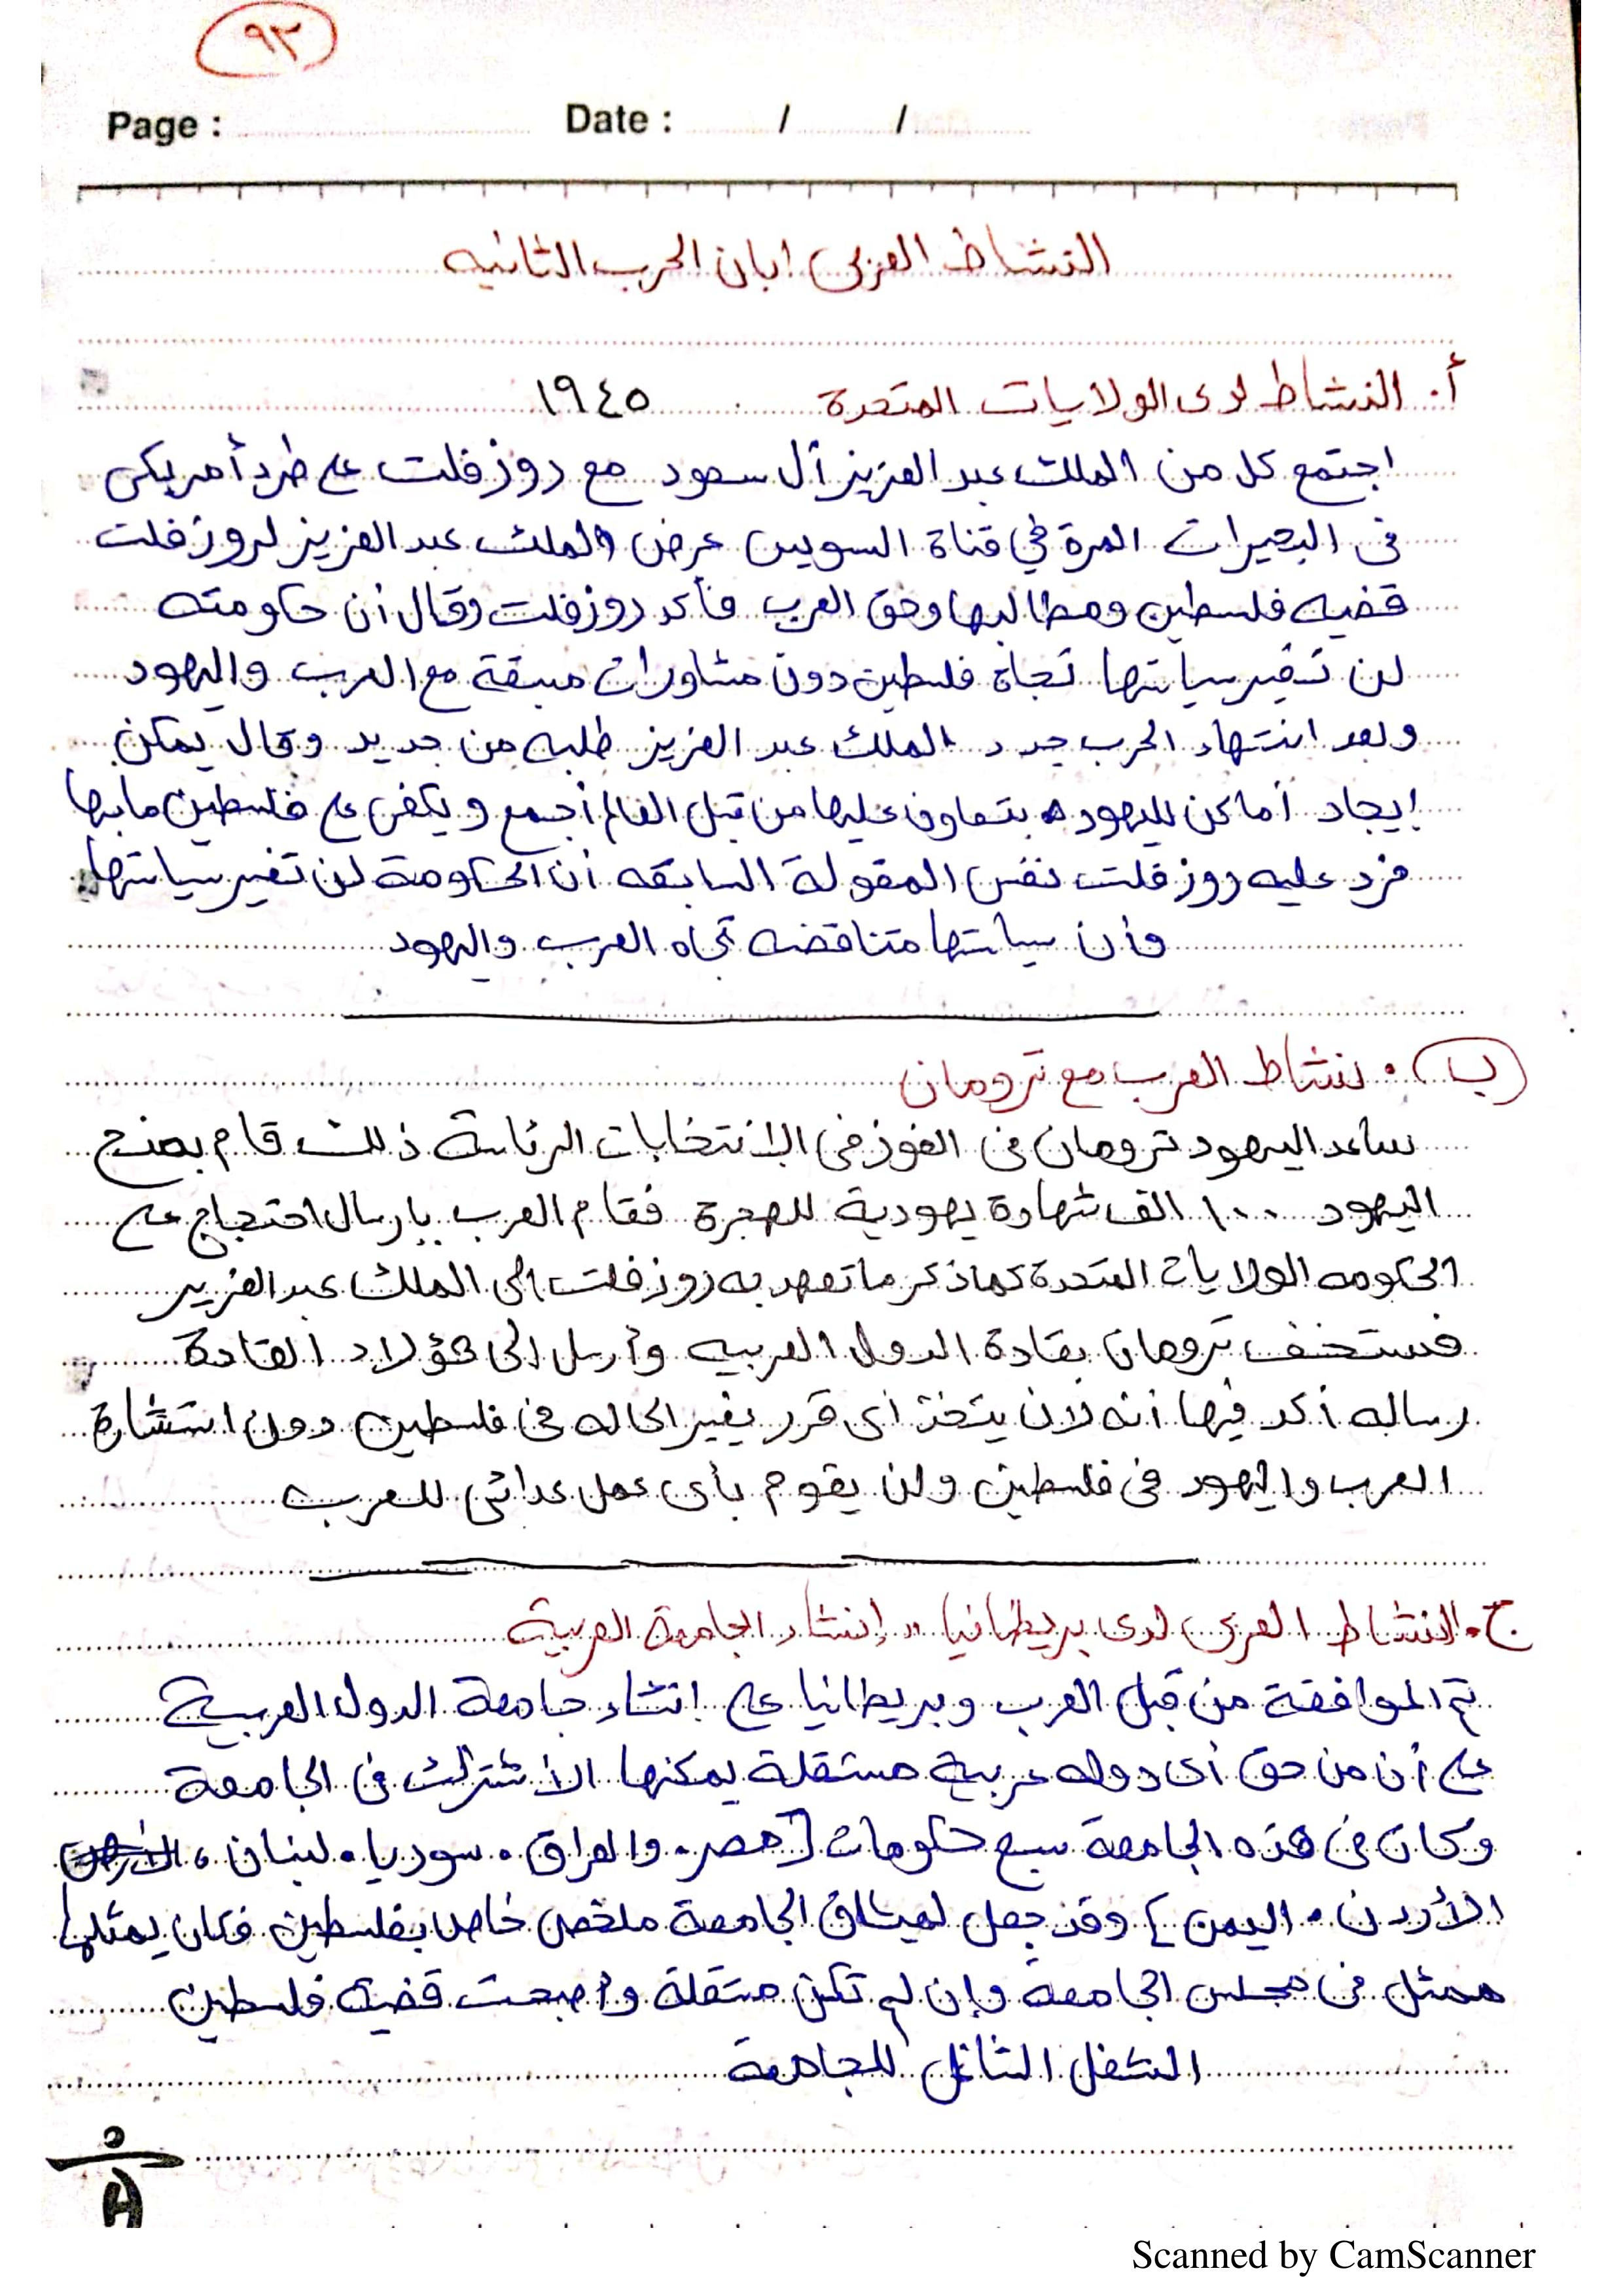 ٩٣
Page : Date : / /
النشاط العربى ابان الحرب الثانيه
أ. النشاط لدى الولايات المتحدة ١٩٤٥
اجتمع كل من الملك عبد العزيز آل سعود مع روزفلت على طرد أمريكى
فى البحيرات المرة في قناة السويس عرض الملك عبد العزيز لروزفلت
قضيه فلسطين ومطالبها وحق العرب فأكد روزفلت وقال أن حكومته
لن تغير سياستها تجاة فلسطين دون مشاورات مسبقة مع العرب واليهود
وبعد انتهاء الحرب جدد الملك عبد العزيز طلبه من جديد وقال يمكن
إيجاد أماكن لليهود يتعاون عليها من قبل العالم أجمع ويكفى على فلسطين ما بها
فرد عليه روزفلت نفس المقولة السابقه أن الحكومة لن تغير سياستها
وأن سياستها متناقضه تجاه العرب واليهود
ب . نشاط العرب مع ترومان
ساعد اليهود ترومان فى الفوز فى الانتخابات الرئاسة ذلك قام بمنح
اليهود ١٠٠ الف شهادة يهودية للهجرة فقام العرب بإرسال احتجاج على
الحكومه الولايات المتحدة كما ذكر ما تعهد به روزفلت إلى الملك عبد العزيز
فستخف ترومان بقادة الدول العربيه وأرسل إلى هؤلاء القادة
رساله أكد فيها أنه لان يتخذ أى قرر يغير الحاله فى فلسطين دون استشارة
العرب واليهود فى فلسطين ولن يقوم بأى عمل عدائى للعرب
ج. النشاط العربى لدى بريطانيا " إنشاء الجامعة العربية
تم الموافقة من قبل العرب وبريطانيا على انشاء جامعة الدول العربية
على أن من حق أى دوله عربية مستقلة يمكنها الاشتراك فى الجامعة
وكان فى هذه الجامعة سبع حكومات [ مصر . والعراق . سوريا . لبنان ،
الأردن . اليمن } وقد جعل لميثاق الجامعة ملخص خاص بفلسطين فكان يمثلها
ممثل فى مجلس الجامعه وإن لم تكن مستقلة وأصبحت قضية فلسطين
الشغل الشاغل للجامعة
Scanned by CamScanner